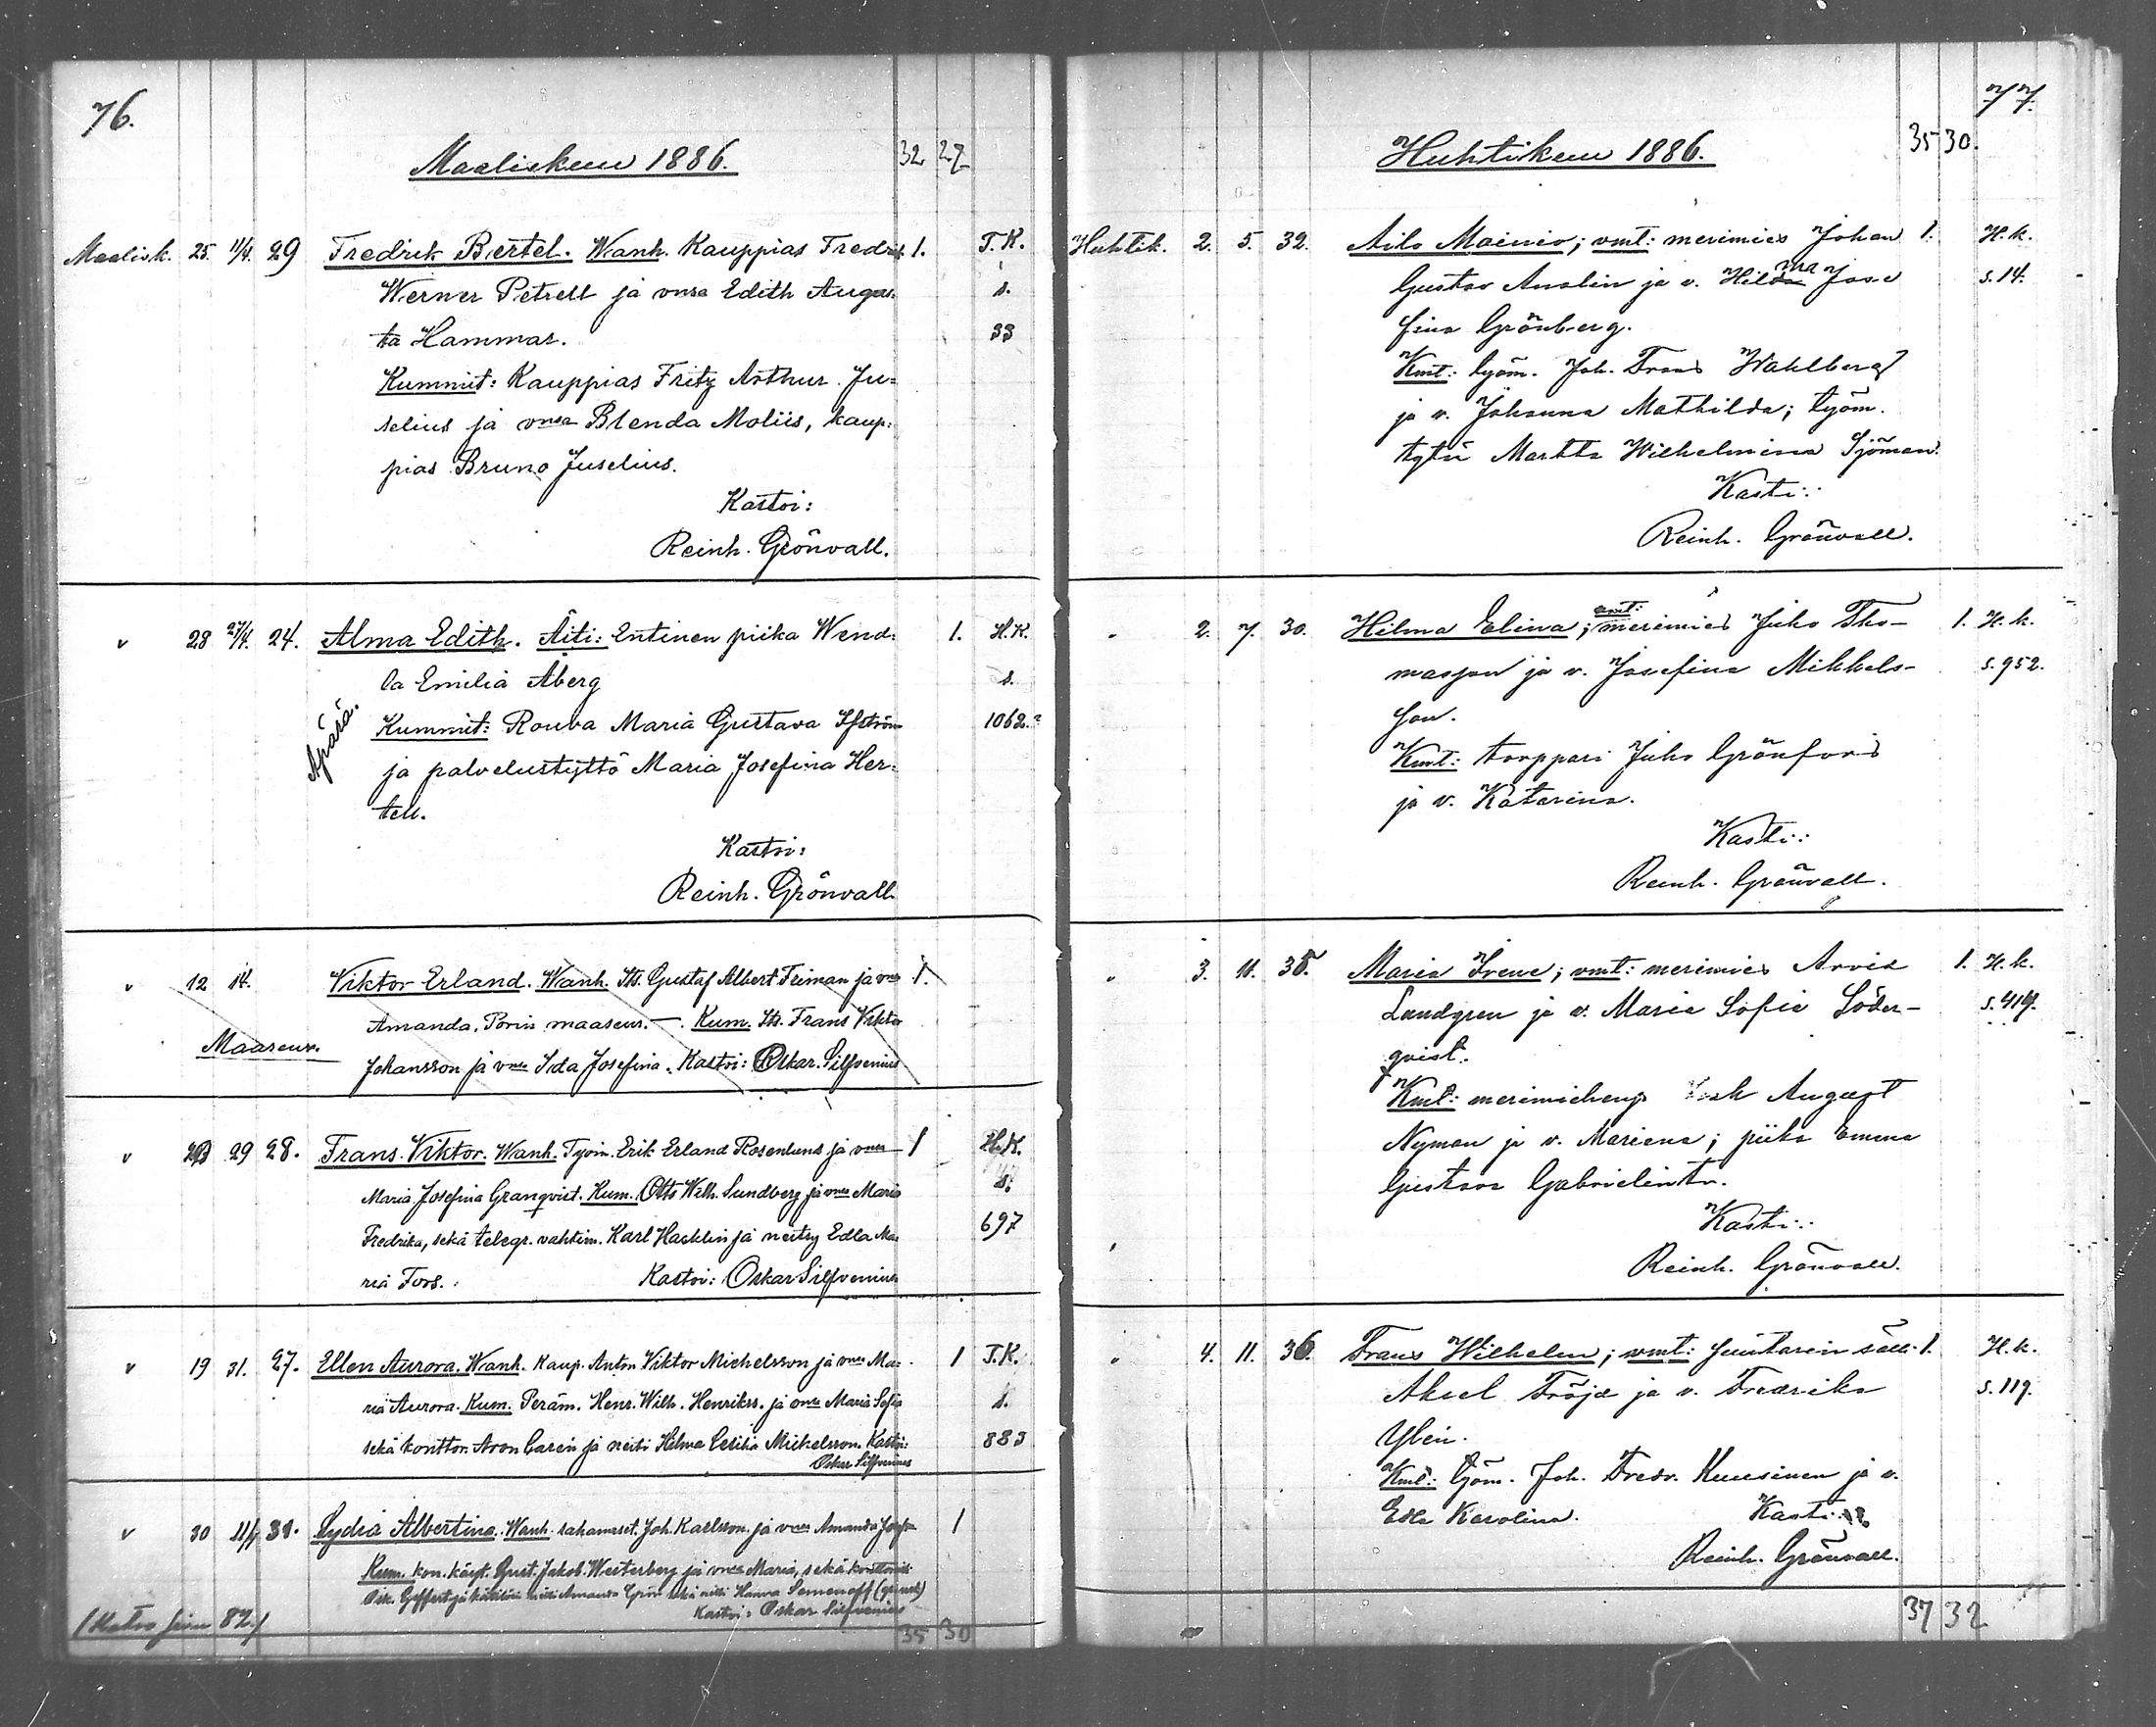 76.
Maaliskuu 1886. 32 27
Maalisk. 25. 11/4. 29 Fredrik Bertel. Wanh. Kauppias Fredrik 1. T.K.
Werner Petrell ja vmsa Edith Augus- s.
ta Hammar. 33
Kummit: Kauppias Fritz Arthur Ju=
selius ja vmsa Blenda Moliis, kaup=
pias Bruno Juselius.
Kastoi:
Reinh. Grönvall.
v 28 27/4. 24. Alma Edith. Äiti: Entinen piika Wend= 1. H.K.
la Emilia Åberg s.
Äpärä.
Kummit: Rouva Maria Gustava 1062.
ja palvelustyttö Maria Josefina Her=
tell.
Kastoi:
Reinh. Grönvall.
v 12 14. Viktor Erland. Wanh. Its. Gustaf Albert Friman ja vmsa 1.
Amanda, Porin maaseur. —. Kum. Its. Frans Viktor
Maaseur.
Johansson ja vmsa Ida Josefina. Kastoi: Oskar Silfvenius
v 29 28. Frans Viktor. Wanh. Työm. Erik Erland Rosenlund ja vmsa 1 H.K.
Maria Josefina Granqvist. Kum. Otto Wilh. Sundberg ja vmsa Maria s.
Fredrika, sekä telegr. vahtim. Karl Hacklin ja neitsy Edla Ma= 697
ria Fors. Kastoi: Oskar Silfvenius
v 19 31. 27. Ellen Aurora. Wanh. Kaup. Anton Viktor Michelsson ja vmsa Ma= 1 T.K.
ria Aurora. Kum. Peräm. Henr. Wilh. Henrikss. ja vmsa Maria Sofia s.
sekä konttor. Aron Caren ja neiti Hilma Cecilia Mickelsson. Kastoi: 883
Oskar Silfvenius
v 30 11/4 31. Lydia Albertina. Wanh. sahanaset. Joh. Karlsson ja vmsa Amanda Josefa 1
Kum. kon. käyt. Gust. Jakob Westerberg ja vmsa Maria, sekä konttoristi
Osk. Geffert ja neiti Amanda Grön sekä neiti Hanna Semenoff
Kastoi: Oskar Silfvenius
/Katso sivu 82/ 35 30
77.
Huhtikuu 1886. 35 30.
Huhtik. 2. 5. 32. Ailo Mainio; vmt: merimies Johan 1. H.k.
Gustav Analin ja v. Hilma Jose s. 14.
fina Grönberg.
Kmt: työm. Joh. Frans Wahlberg
ja v. Johanna Mathilda; työm.
tytär Martta Wilhelmina Sjöman.
Kasti:
Reinh. Grönvall.
" 2. 7. 30. Hilma Elina; vmt: merimies Juho Tho- 1. H.k.
masson ja v. Josefina Mikkels- s. 952.
son.
Kmt: torppari Juho Grönfors
ja v. Katarina.
Kasti:
Reinh. Grönvall.
" 3. 11. 35. Maria Irene; vmt: merimies Arvid 1. H.k.
Lundgren ja v. Maria Sofia Söder- s. 419.
qvist.
Kmt: merimiehenp. August
Nyman ja v. Mariana; piika Emma
Gustava Gabrielintr.
Kasti:
Reinh. Grönvall.
" 4. 11. 36. Frans Wilhelm; vmt: suutarin säll. 1. H.k.
Aksel Fröjd ja v. Fredrika s. 119.
Ylen.
Kmt: työm. Joh. Fredr. Kuusinen ja v.
Edla Karolina. Kasti:
Reinh. Grönvall.
37 32